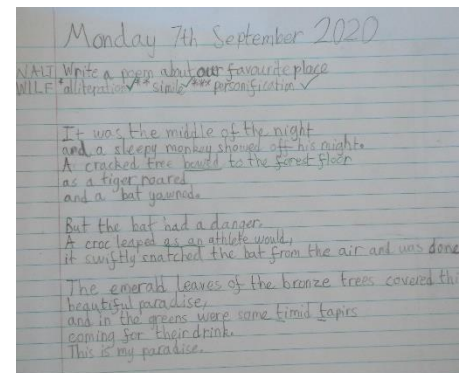 Monday 7th September 2020
WALT Write a poem about our favourite place
WILF *alliteration✓ **simile✓ ***personification✓
It was the middle of the night
and a sleepy monkey showed off his might.
A cracked tree bowed to the forest floor
as a tiger roared,
and a bat yawned.
But the bat had a danger.
A croc leaped as an athlete would,
it swiftly snatched the bat from the air and was done
The emerald leaves of the bronze trees covered thi
beautiful paradise,
and in the greens were some timid tapirs
coming for their drink.
This is my paradise.